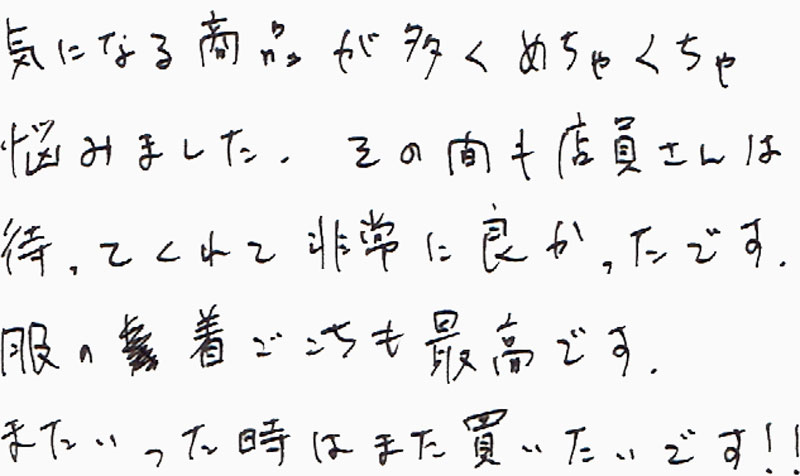 気になる商品が多くめちゃくちゃ
悩みました。その間も店員さんは
待ってくれて非常に良かったです。
服の着ごこちも最高です。
またいった時はまた買いたいです!!